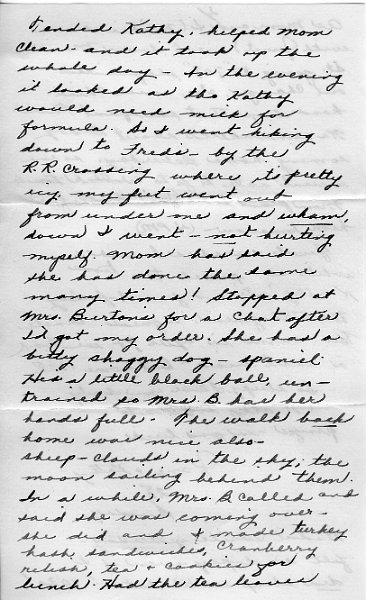 Tended Kathy, helped Mom
clean - and it took up the
whole day - In the evening
it looked as tho Kathy
would need milk for
formula. So I went hiking
down to Freds - by the
R.R. crossing where it is pretty
icy my feet went out
from under me and wham,
down I went - not hurting
myself. Mom has said
she has done the same
many times! Stopped at
Mrs. Burtons for a chat after
I'd got my order. She has a
bitty shaggy dog - spaniel.
Has a little black ball, un-
trained so Mrs. B. has her
hands full. The walk back
home was nice also -
sheep-clouds in the sky, the
moon sailing behind them.
In a while, Mrs. B. called and
said she was coming over -
she did and I made turkey
hash sandwiches, cranberry
relish, tea + cookies for
lunch. Had the tea leaves